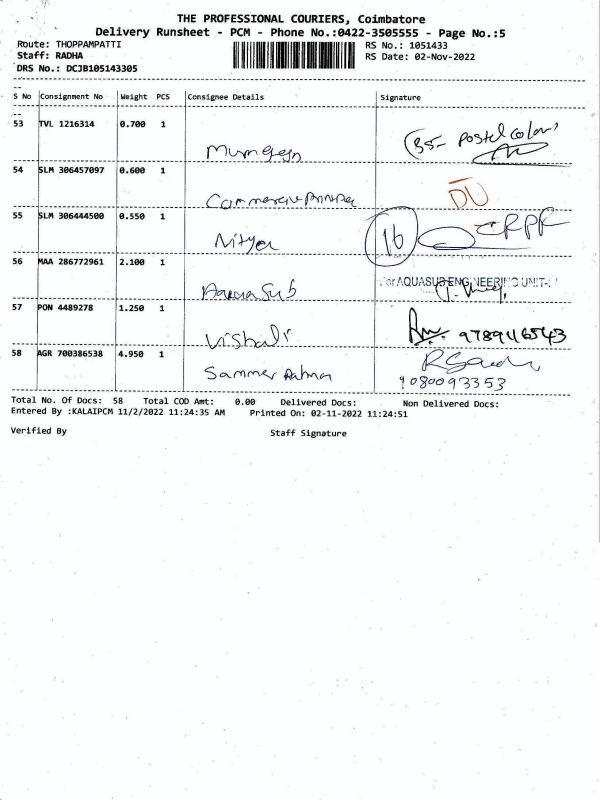 THE PROFESSIONAL COURIERS, Coimbatore
Delivery Runsheet - PCM - Phone No.:0422-3505555 - Page No.:5
Route: THOPPAMPATTI RS No.: 1051433
Staff: RADHA RS Date: 02-Nov-2022
DRS No.: DCJB105143305
S No Consignment No Weight PCS Consignee Details Signature
53 TVL 1216314 0.700 1
Murugesn (35- Postel colony
54 SLM 306457097 0.600 1
DU
55 SLM 306444500 0.550 1
Nitya 16 CRPF
56 MAA 286772961 2.100 1
Aqua Sub For AQUASUB ENGINEERING UNIT-
57 PON 4489278 1.250 1
Vishali 9789116543
58 AGR 700386538 4.950 1
Sammer 9080093353
Total No. Of Docs: 58 Total COD Amt: 0.00 Delivered Docs: Non Delivered Docs:
Entered By :KALAIPCM 11/2/2022 11:24:35 AM Printed On: 02-11-2022 11:24:51
Verified By Staff Signature